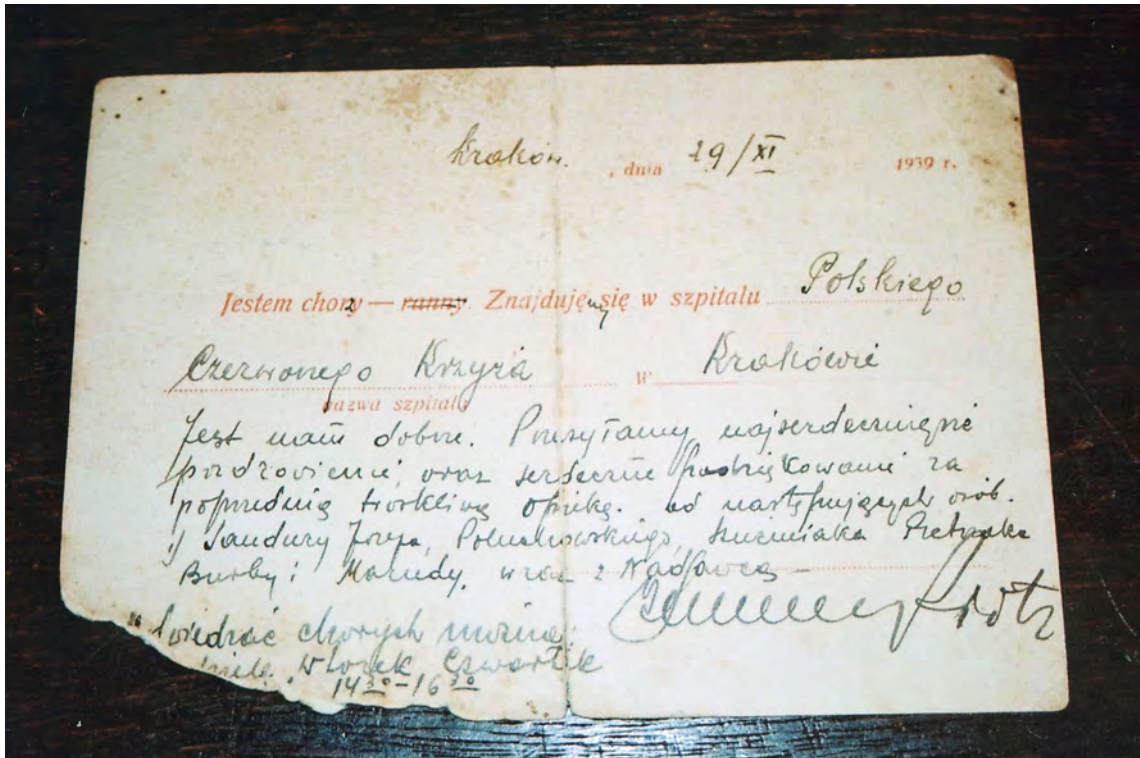 Kraków. , dnia 29/XI 1939 r.
Jestem chory — ranny. Znajduję się w szpitalu Polskiego
Czerwonego Krzyża w Krakówie
nazwa szpitala
Jest nam dobrze. Przesyłamy najserdeczniejsze
pozdrowienie, oraz serdeczne podziękowanie za
poprzednią troskliwą opiekę. od następujących osób.
Sandury Józefa,
Burby i Marudy, wraz z Nadawcą
Piotr
wiedzać chorych można:
Wtorek Czwartek
14³⁰-16³⁰